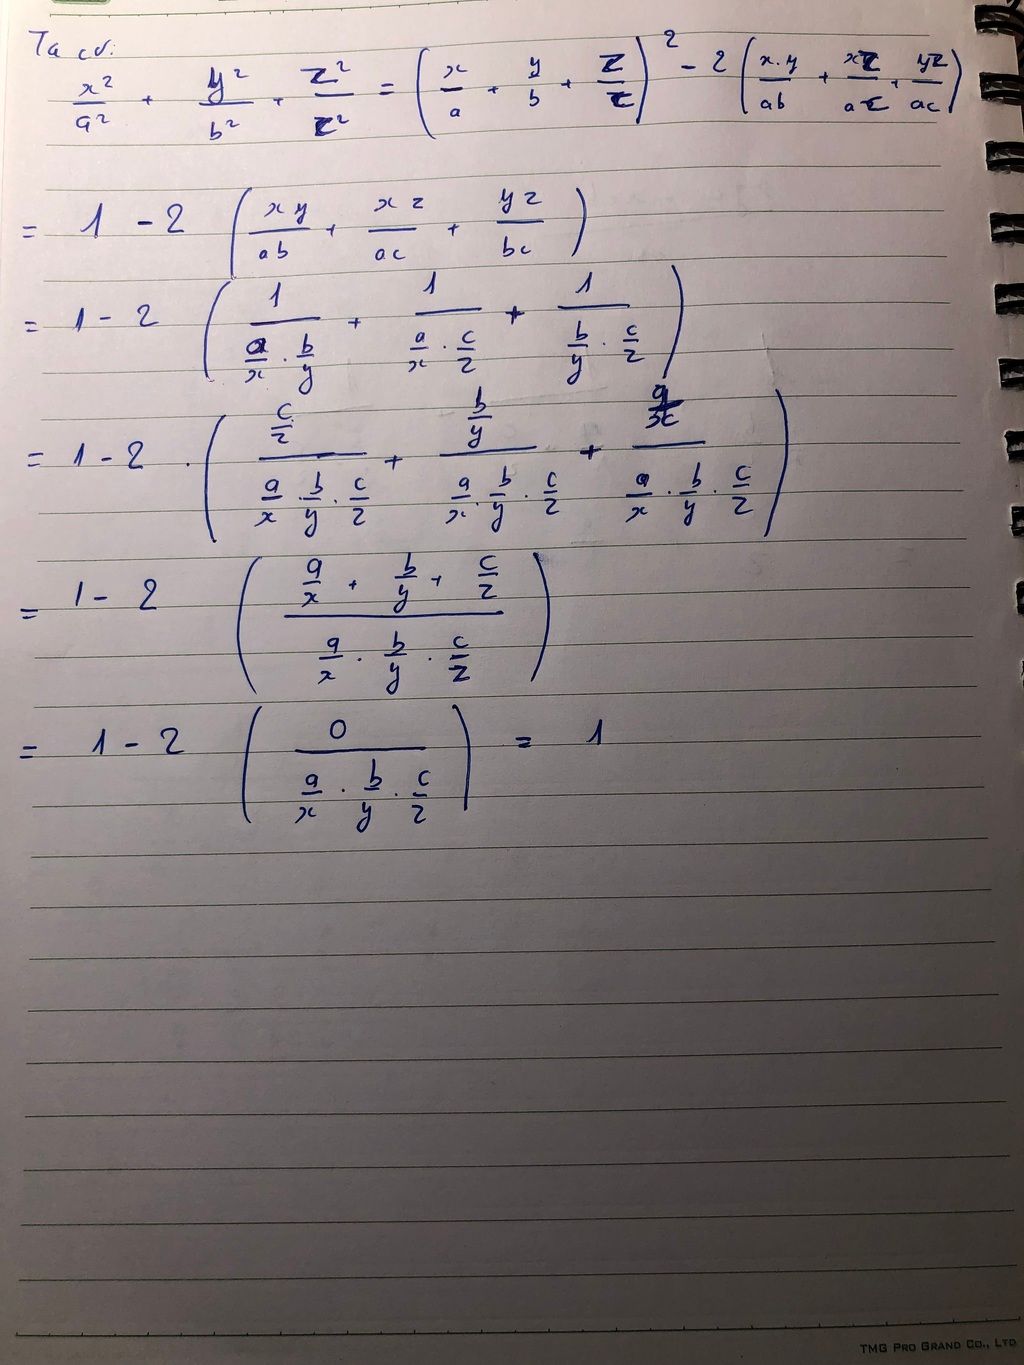 Ta có:
x²/a² + y²/b² + z²/z² = (x/a + y/b + z/z)² - 2 (x.y/ab + xz/ac + yz/ac)
= 1 - 2 (xy/ab + xz/ac + yz/bc)
= 1 - 2 (1/(a/x . b/y) + 1/(a/x . c/z) + 1/(b/y . c/z))
= 1 - 2 . ((c/z)/(a/x . b/y . c/z) + (b/y)/(a/x . b/y . c/z) + (a/x)/(a/x . b/y . c/z))
= 1 - 2 ((a/x + b/y + c/z)/(a/x . b/y . c/z))
= 1 - 2 (0/(a/x . b/y . c/z)) = 1
TMG PRO GRAND CO., LTD